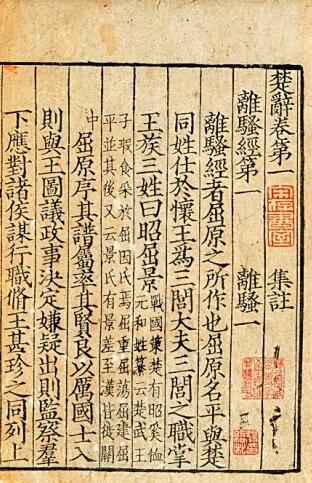 楚辭卷第一 集註
離騷經第一 離騷一
離騷經者屈原之所作也屈原名平與楚
同姓仕於懷王爲三閭大夫三閭之職掌
王族三姓曰昭屈景
戰國策楚有昭奚恤
元和姓纂云楚武王
子瑕食采於屈因氏焉屈重屈蕩屈建屈
平並其後又云景氏有景差至漢皆徙關
中
屈原序其譜屬率其賢良以厲國士入
則與王圖議政事決定嫌疑出則監察羣
下應對諸侯謀行職脩王甚珍之同列上